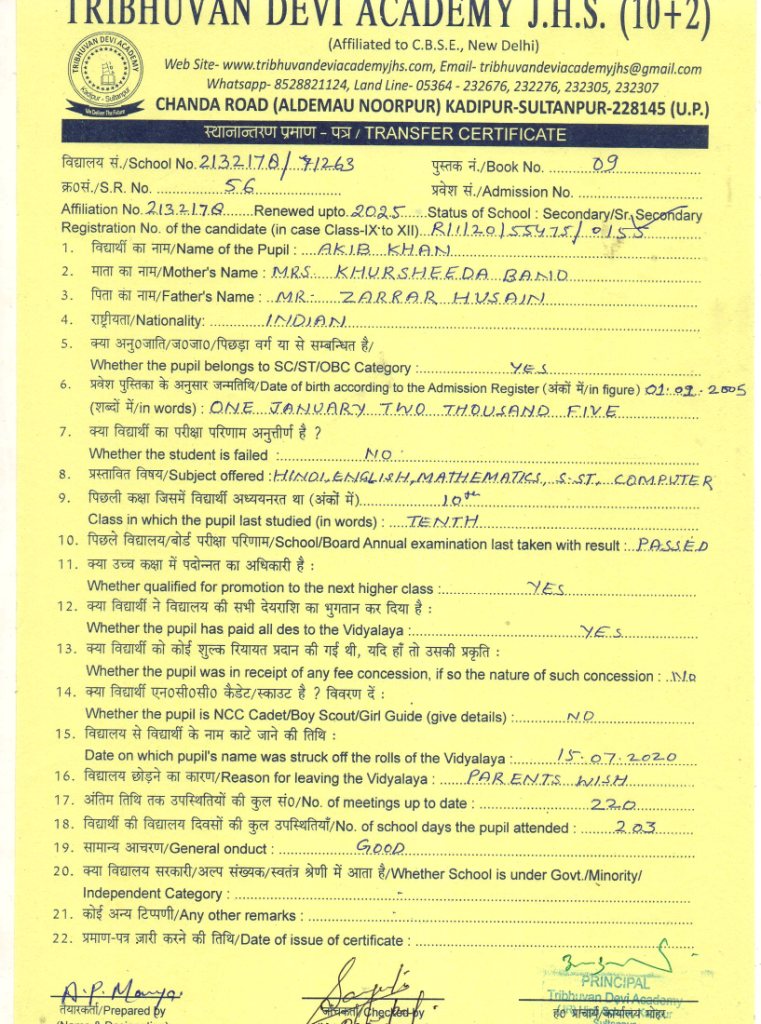 TRIBHUVAN DEVI ACADEMY J.H.S. (10+2)
(Affiliated to C.B.S.E., New Delhi)
Web Site- www.tribhuvandeviacademyjhs.com, Email- tribhuvandeviacademyjhs@gmail.com
Whatsapp- 8528821124, Land Line- 05364 - 232676, 232276, 232305, 232307
CHANDA ROAD (ALDEMAU NOORPUR) KADIPUR-SULTANPUR-228145 (U.P.)
TRIBHUVAN DEVI ACADEMY
Kadipur - Sultanpur
We Deliver The Future
स्थानान्तरण प्रमाण - पत्र / TRANSFER CERTIFICATE
विद्यालय सं./School No. 213217A/71263 पुस्तक नं./Book No. 09
क्र०सं./S.R. No. 56 प्रवेश सं./Admission No.
Affiliation No. 213217A Renewed upto 2025 Status of School : Secondary/Sr. Secondary
Registration No. of the candidate (in case Class-IX to XII) R/1/20/55475/0155
1. विद्यार्थी का नाम/Name of the Pupil : AKIB KHAN
2. माता का नाम/Mother's Name : MRS. KHURSHEEDA BANO
3. पिता का नाम/Father's Name : MR. ZARRAR HUSAIN
4. राष्ट्रीयता/Nationality: INDIAN
5. क्या अनु०जाति/ज०जा०/पिछड़ा वर्ग या से सम्बन्धित है/
Whether the pupil belongs to SC/ST/OBC Category : YES
6. प्रवेश पुस्तिका के अनुसार जन्मतिथि/Date of birth according to the Admission Register (अंकों में/in figure) 01.01.2005
(शब्दों में/in words) : ONE JANUARY TWO THOUSAND FIVE
7. क्या विद्यार्थी का परीक्षा परिणाम अनुत्तीर्ण है ?
Whether the student is failed : NO
8. प्रस्तावित विषय/Subject offered : HINDI, ENGLISH, MATHEMATICS, S.ST, COMPUTER
9. पिछली कक्षा जिसमें विद्यार्थी अध्ययनरत था (अंकों में) 10th
Class in which the pupil last studied (in words) : TENTH
10. पिछले विद्यालय/बोर्ड परीक्षा परिणाम/School/Board Annual examination last taken with result : PASSED
11. क्या उच्च कक्षा में पदोन्नत का अधिकारी है :
Whether qualified for promotion to the next higher class : YES
12. क्या विद्यार्थी ने विद्यालय की सभी देयराशि का भुगतान कर दिया है :
Whether the pupil has paid all des to the Vidyalaya : YES
13. क्या विद्यार्थी को कोई शुल्क रियायत प्रदान की गई थी, यदि हाँ तो उसकी प्रकृति :
Whether the pupil was in receipt of any fee concession, if so the nature of such concession : No
14. क्या विद्यार्थी एन०सी०सी० कैडेट/स्काउट है ? विवरण दें :
Whether the pupil is NCC Cadet/Boy Scout/Girl Guide (give details) : NO
15. विद्यालय से विद्यार्थी के नाम काटे जाने की तिथि :
Date on which pupil's name was struck off the rolls of the Vidyalaya : 15.07.2020
16. विद्यालय छोड़ने का कारण/Reason for leaving the Vidyalaya : PARENTS WISH
17. अंतिम तिथि तक उपस्थितियों की कुल सं०/No. of meetings up to date : 220
18. विद्यार्थी की विद्यालय दिवसों की कुल उपस्थितियाँ/No. of school days the pupil attended : 203
19. सामान्य आचरण/General onduct : GOOD
20. क्या विद्यालय सरकारी/अल्प संख्यक/स्वतंत्र श्रेणी में आता है/Whether School is under Govt./Minority/
Independent Category :
21. कोई अन्य टिप्पणी/Any other remarks :
22. प्रमाण-पत्र ज़ारी करने की तिथि/Date of issue of certificate :
PRINCIPAL
Tribhuvan Devi Academy
तैयारकर्ता/Prepared by जाँचकर्ता/Checked by ह० प्राचार्य/कार्यालय मोहर